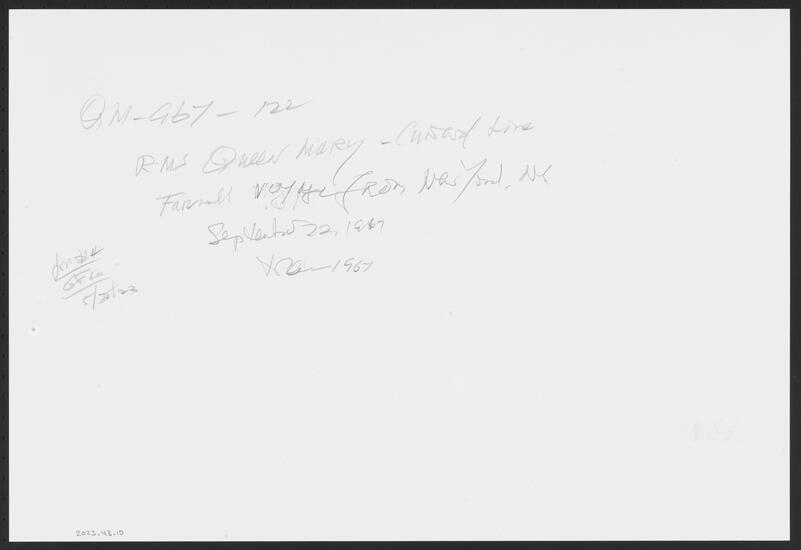 QM-967-122
RMS Queen Mary - Cunard Line
Farwell voyage from New York, NY
September 22, 1967
1967
5/31/23
2023.43.10